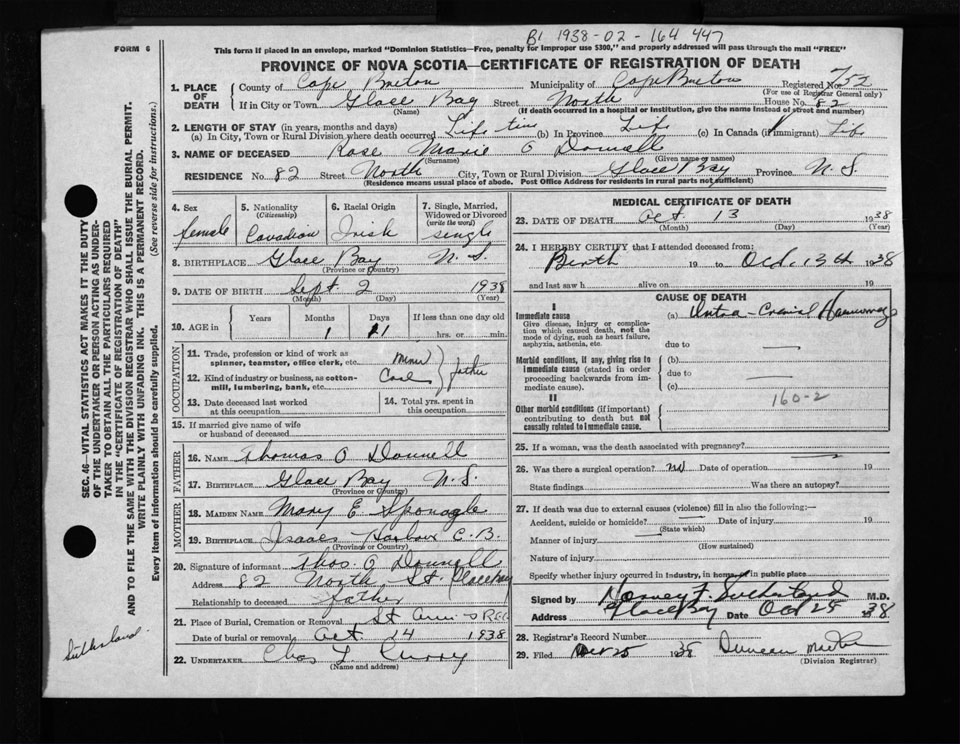 B1 1938-02-164 447
FORM 6
This form if placed in an envelope, marked "Dominion Statistics—Free, penalty for improper use $300," and properly addressed will pass through the mail "FREE"
PROVINCE OF NOVA SCOTIA—CERTIFICATE OF REGISTRATION OF DEATH
1. PLACE OF DEATH County of Cape Breton Municipality of Cape Breton Registered No. 752
(For use of Registrar General only)
If in City or Town Glace Bay Street North House No. 82
(Name) (If death occurred in a hospital or institution, give the name instead of street and number)
2. LENGTH OF STAY (in years, months and days)
(a) In City, Town or Rural Division where death occurred Life time (b) In Province Life (c) In Canada (if immigrant) Life
3. NAME OF DECEASED Rose Marie O Donnell
(Surname) (Given name or names)
RESIDENCE No. 82 Street North City, Town or Rural Division Glace Bay Province N. S.
(Residence means usual place of abode. Post Office Address for residents in rural parts not sufficient)
4. Sex female
5. Nationality (Citizenship) Canadian
6. Racial Origin Irish
7. Single, Married, Widowed or Divorced (write the word) single
8. BIRTHPLACE Glace Bay N. S.
(Province or Country)
9. DATE OF BIRTH Sept. 2 1938
(Month) (Day) (Year)
10. AGE in Years Months Days If less than one day old
1 11 hrs. or min.
OCCUPATION
11. Trade, profession or kind of work as spinner, teamster, office clerk, etc. Miner
12. Kind of industry or business, as cotton-mill, lumbering, bank, etc. Coal } father
13. Date deceased last worked at this occupation
14. Total yrs. spent in this occupation
15. If married give name of wife or husband of deceased
FATHER
16. NAME Thomas O Donnell
17. BIRTHPLACE Glace Bay N. S.
(Province or Country)
MOTHER
18. MAIDEN NAME Mary E Sponagle
19. BIRTHPLACE Isaacs Harbour C. B.
(Province or Country)
20. Signature of informant Thos. O Donnell
Address 82 North St. Glace Bay
Relationship to deceased father
21. Place of Burial, Cremation or Removal St Ann's
Date of burial or removal Oct 14 1938
22. UNDERTAKER Chas L. Curry
(Name and address)
MEDICAL CERTIFICATE OF DEATH
23. DATE OF DEATH Oct 13 1938
(Month) (Day) (Year)
24. I HEREBY CERTIFY that I attended deceased from:
Birth 19 to Oct. 13th 1938
and last saw h alive on 19
CAUSE OF DEATH
I
Immediate cause (a) Intra-Cranial
Give disease, injury or complication which caused death, not the mode of dying, such as heart failure, asphyxia, asthenia, etc. due to
Morbid conditions, if any, giving rise to immediate cause (stated in order proceeding backwards from immediate cause). (b) due to (c)
II
160-2
Other morbid conditions (if important) contributing to death but not causally related to immediate cause.
25. If a woman, was the death associated with pregnancy?
26. Was there a surgical operation? no Date of operation 19
State findings Was there an autopsy?
27. If death was due to external causes (violence) fill in also the following:—
Accident, suicide or homicide? Date of injury 19
(State which)
Manner of injury
(How sustained)
Nature of injury
Specify whether injury occurred in industry, in home, or in public place
Signed by Harvey F. Sutherland M.D.
Address Glace Bay Date Oct 25 1938
28. Registrar's Record Number
29. Filed Oct 25 1938 Duncan
(Division Registrar)
SEC. 46—VITAL STATISTICS ACT MAKES IT THE DUTY
OF THE UNDERTAKER OR PERSON ACTING AS UNDER-
TAKER TO OBTAIN ALL THE PARTICULARS REQUIRED
IN THE "CERTIFICATE OF REGISTRATION OF DEATH"
AND TO FILE THE SAME WITH THE DIVISION REGISTRAR WHO SHALL ISSUE THE BURIAL PERMIT.
WRITE PLAINLY WITH UNFADING INK. THIS IS A PERMANENT RECORD.
Every item of information should be carefully supplied. (See reverse side for instructions.)
Sutherland.